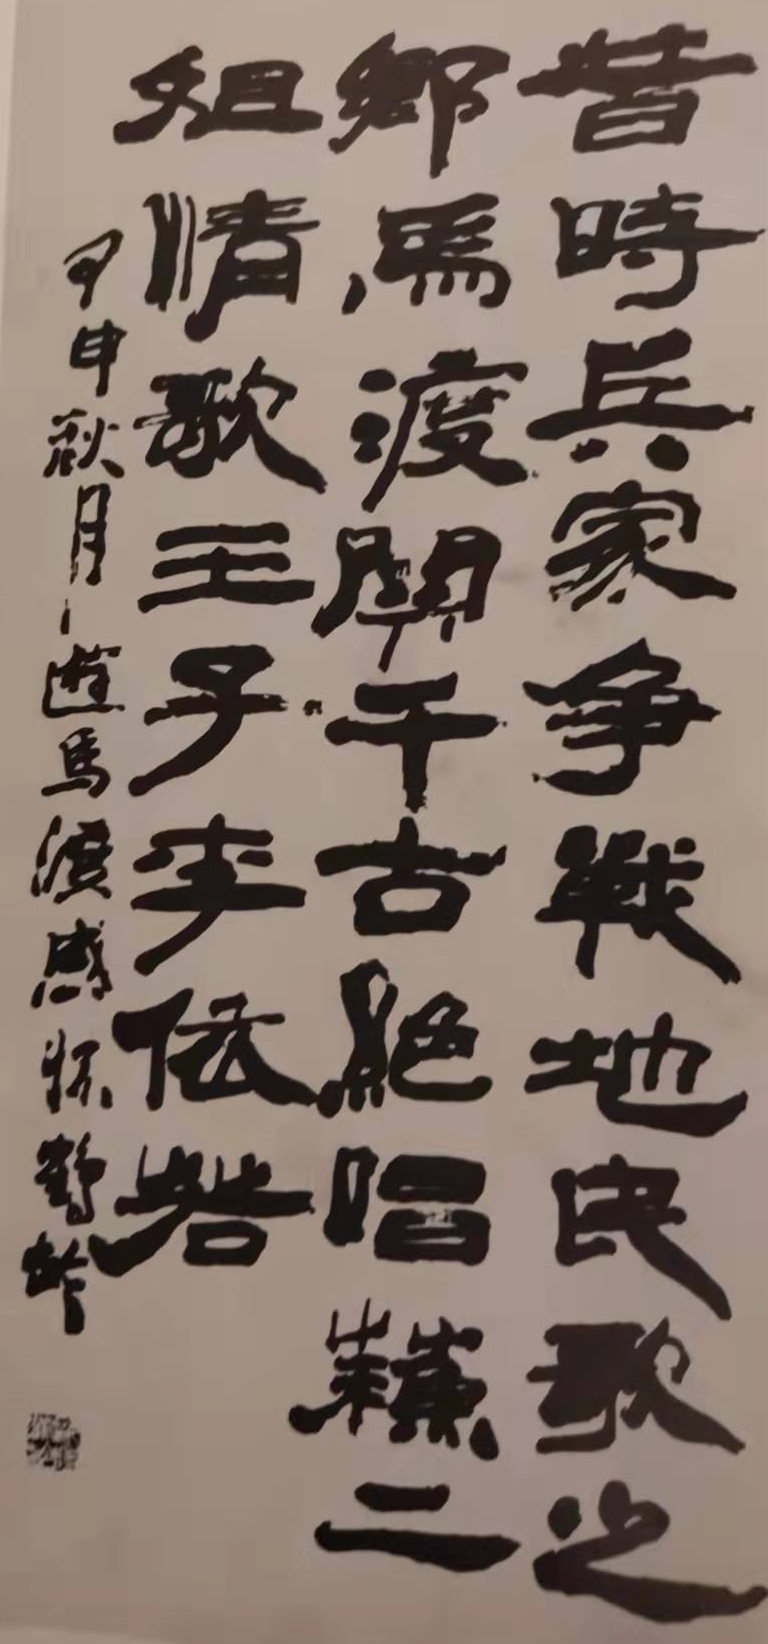 昔時兵家争戰地民歌之
鄉馬渡関千古絕唱蘓二
姐情歌王子李依若
甲申秋月遊馬渡感怀鶴齡